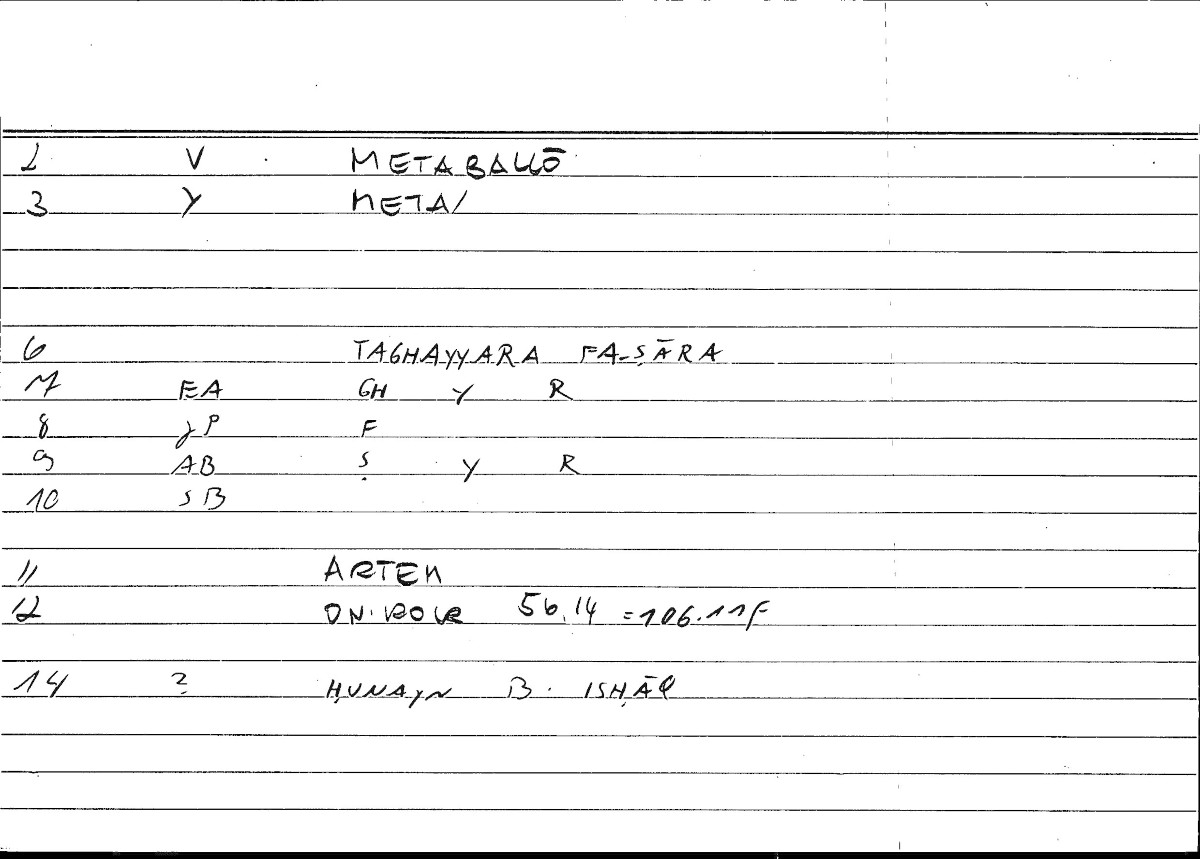 2 V METABALLŌ
3 Y META/
6 TAGHAYYARA FA-ṢĀRA
7 EA GH Y R
8 JP F
9 AB Ṣ Y R
10 SB
11 ARTEM
12 ON.IROCR 56.14 =106.11F
14 ? ḤUNAYN B. ISḤĀQ